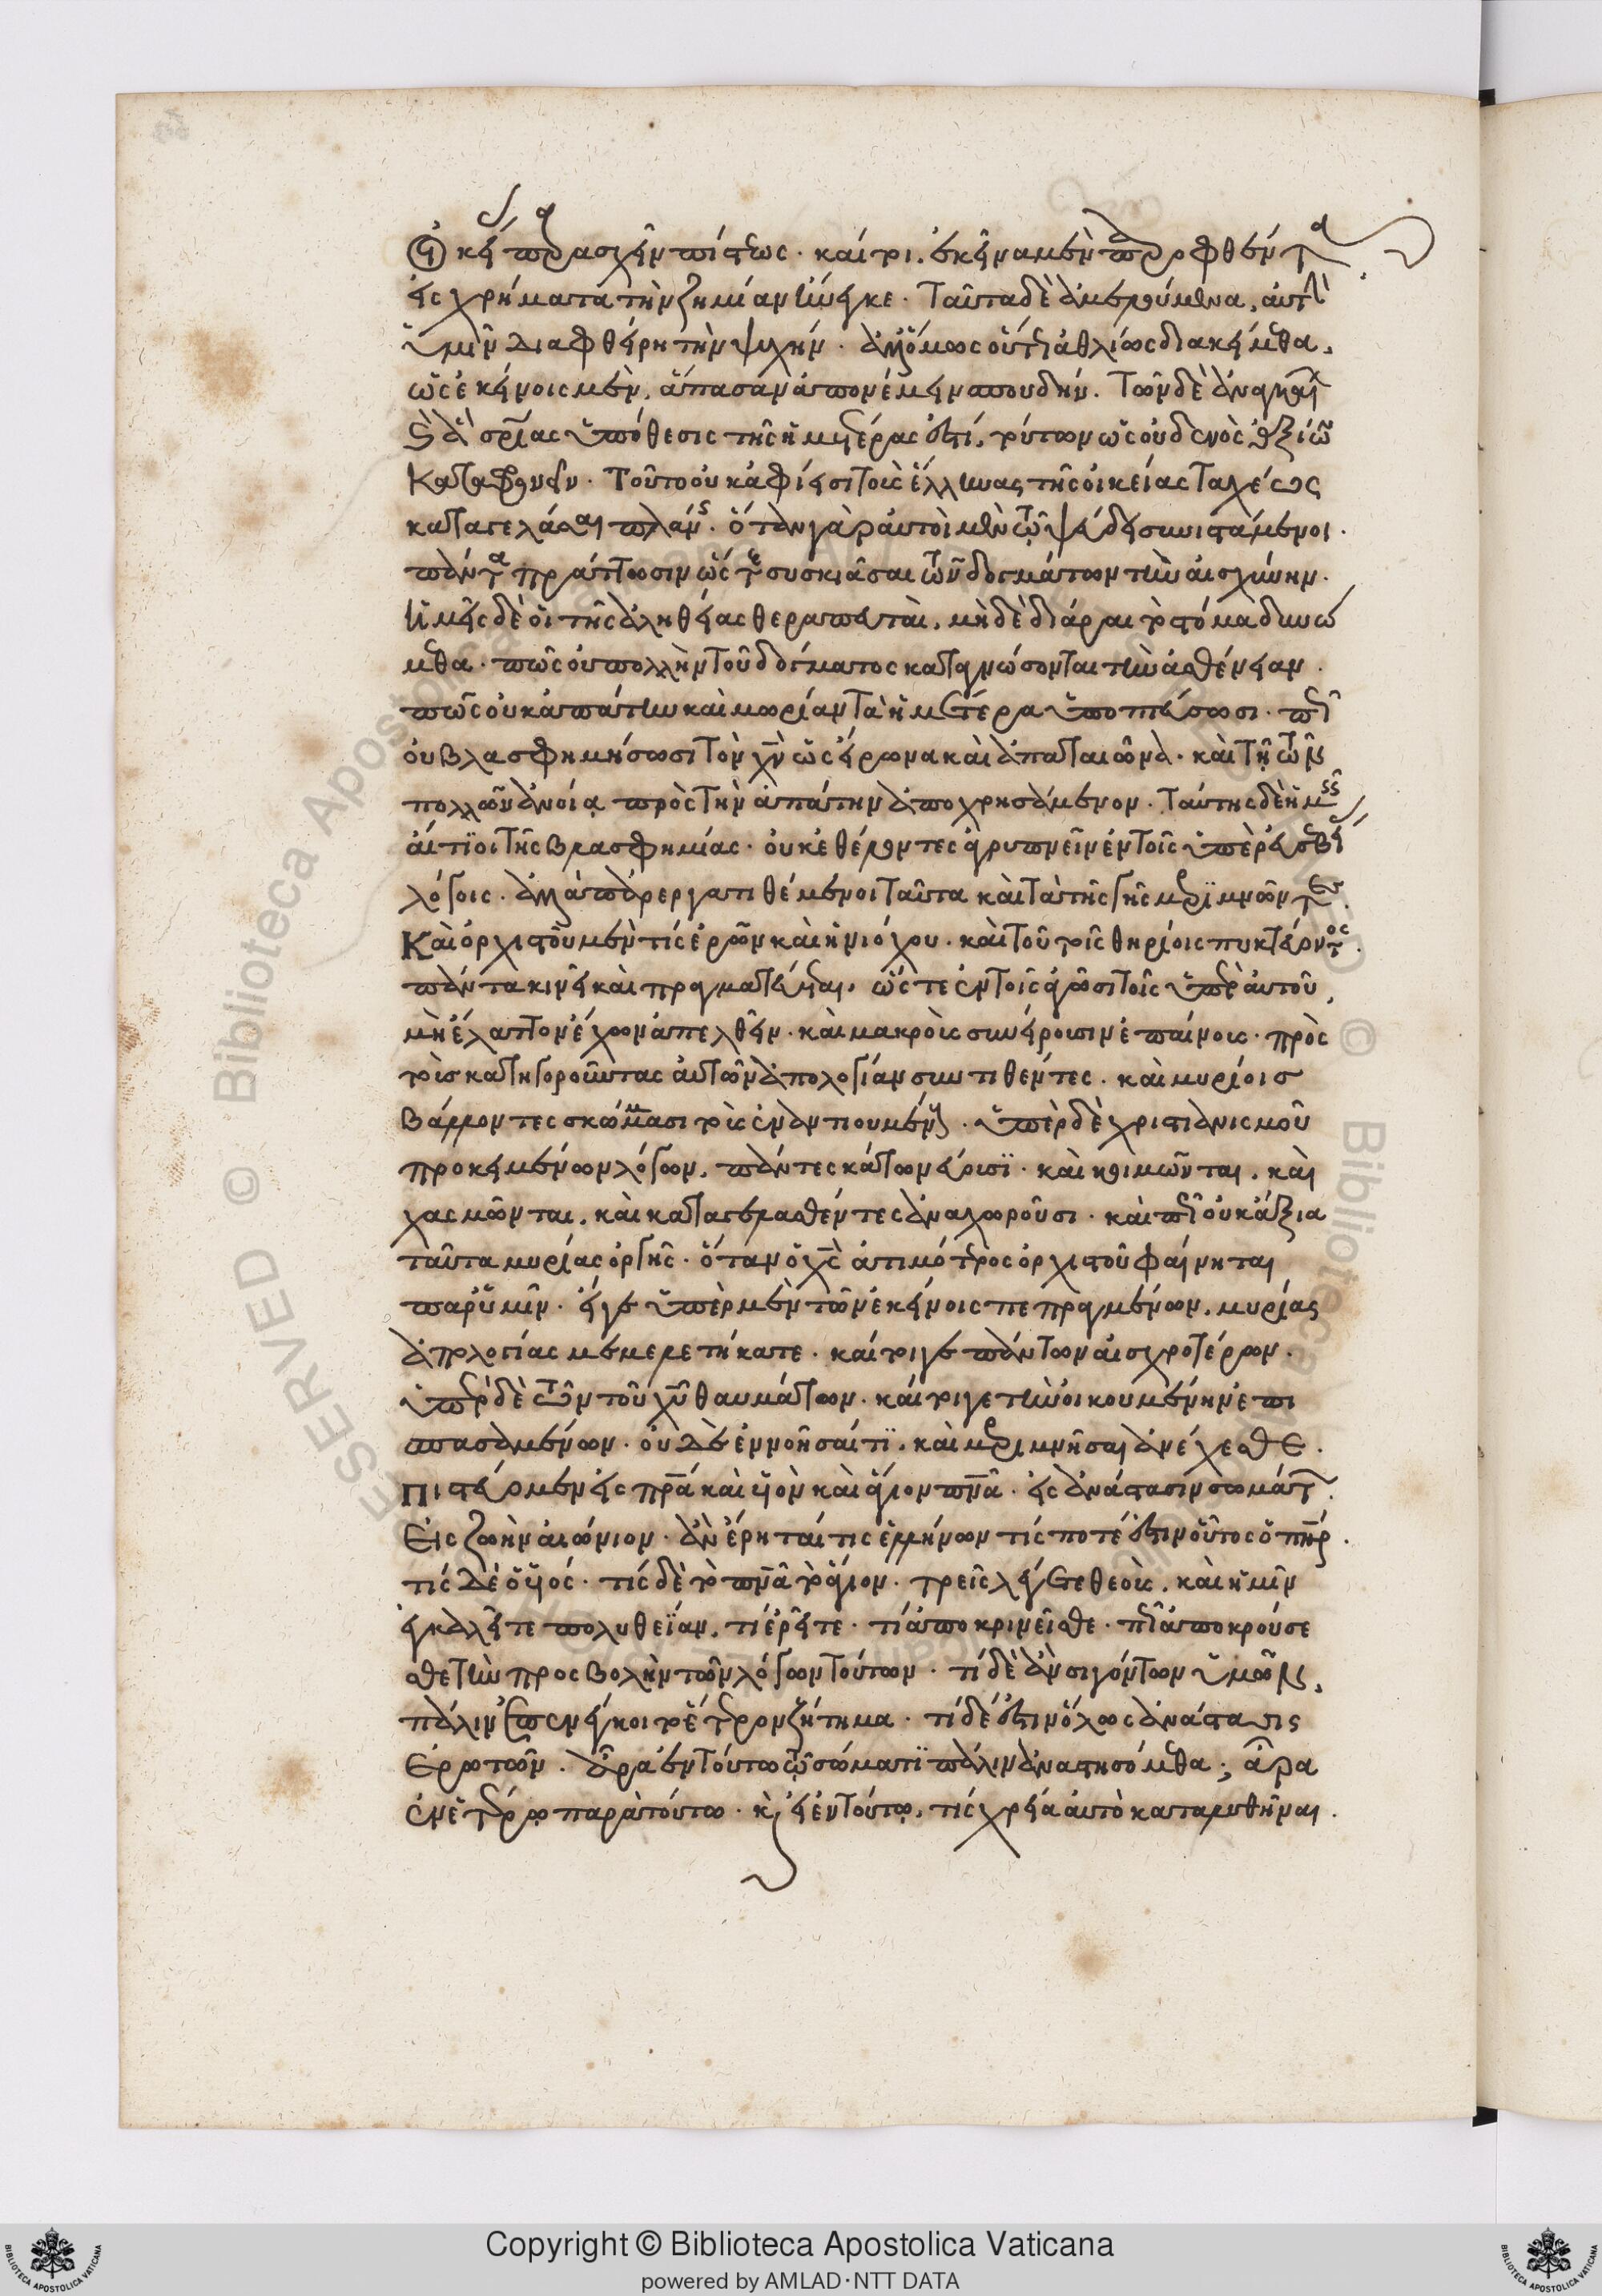 ἐκεῖ παρασχεῖν πίστεως · καίτοι ἐκεῖνα μὲν παροφθέντα
εἰς χρήματα τὴν ζημίαν ἤνεγκε · Ταῦτα δὲ ἀμελούμενα, αὐτὴν
ὑμῖν διαφθείρη τὴν ψυχήν · ἀλλ' ὅμως οὕτως ἀθλίως διακείμεθα,
ὡς ἐκείνοις μὲν, ἅπασαν ἀπονέμειν σπουδήν. Τῶν δὲ ἀναγκαίων
καὶ ἃ σρίας ὑπόθεσις τῆς ἡμετέρας ἐστί, τούτων ὡς οὐδενὸς ἀξίων
Καταφρονεῖν · Τοῦτο οὐκ ἀφίεισι τοὺς ἕλληνας τῆς οἰκείας ταχέως
καταγελάσαι πλάνης · ὅταν γὰρ αὐτοὶ μὲν τῷ ψεύδει συνιστάμενοι ·
πάντα πράττωσιν ὥστε συσκιᾶσαι τῶν δογμάτων τὴν αἰσχύνην ·
ἡμεῖς δὲ οἱ τῆς ἀληθείας θεραπευταὶ, μηδὲ διάραι τὸ στόμα δυνώ
μεθα · πῶς οὐ πολλὴν τοῦ δόγματος καταγνώσονται τὴν ἀσθένειαν ·
πῶς οὐκ ἀπάτην καὶ μωρίαν τὰ ἡμέτερα ὑποπτεύσωσι · πῶς
οὐ βλασφημήσωσι τὸν χν ὡς εἴρωνα καὶ ἀπαταιῶνα · καὶ τῇ τῶν
πολλῶν ἀνοίᾳ πρὸς τὴν ἀπάτην ἀποχρησάμενον · Ταύτης δὲ ἡμεῖς
αἴτιοι τῆς βλασφημίας · οὐκ ἐθέλοντες ἀγρυπνεῖν ἐν τοῖς ὑπὲρ εὐσεβείας
λόγοις · ἀλλὰ πάρεργα τιθέμενοι ταῦτα καὶ τὰ τῆς γῆς μεριμνῶντες ·
Καὶ ὀρχιστοῦ μὲν τίς ἐρῶν καὶ ἡνιόχου · καὶ τοῦ τοῖς θηρίοις πυκτεύοντος ·
πάντα κινεῖ καὶ πραγματεύεται, ὥστε ἐν τοῖς ἀγῶσι τοῖς ὑπὲρ αὐτοῦ,
μὴ ἔλαττον ἔχων ἀπελθεῖν · καὶ μακροὺς συνείρουσιν ἐπαίνους · πρὸς
τοὺς κατηγοροῦντας αὐτῶν ἀπολογίαν συντιθέντες · καὶ μυρίοισ
βάλλοντες σκώμμασι τοὺς ἐναντιουμένους · ὑπὲρ δὲ χριστιανισμοῦ
προκειμένων λόγων, πάντες κάτω νεύουσϊ · καὶ κνιμῶνται, καὶ
χασμῶνται, καὶ καταγελασθέντες ἀναχωροῦσι · καὶ πῶς οὐκ ἄξια
ταῦτα μυρίας ὀργῆς · ὅταν ὁ χς ἀτιμότερος ὀρχιστοῦ φαίνηται
παρ' ὑμῖν · εἴγε ὑπὲρ μὲν τῶν ἐκείνοις πεπραγμένων, μυρίας
ἀπολογίας μεμελετήκατε · καίτοιγε πάντων αἰσχροτέρων ·
ὑπὲρ δὲ τῶν τοῦ χυ θαυμάτων · καίτοιγε τὴν οἰκουμένην ἐπι
σπασαμένων · οὐδὲ ἐννοῆσαί τϊ, καὶ μεριμνῆσαι ἀνέχεσθε ·
Πιστεύομεν εἰς πρα καὶ υἱὸν καὶ ἅγιον πνα · εἰς ἀνάστασιν σωμάτων ·
Εἰς ζωὴν αἰώνιον · ἂν ἔρηταί τις ἑλλήνων τίς ποτέ ἐστιν οὗτος ὁ πηρ ·
τίς δὲ ὁ υἱός · τίς δὲ τὸ πνα τὸ ἅγιον · τρεῖς λέγετε θεοὺς, καὶ ἡμῖν
ἐγκαλεῖτε πολυθεΐαν, τί ἐρεῖτε · τί ἀποκρινεῖσθε · πῶς ἀποκρούσε
σθε τὴν προσβολὴν τῶν λόγων τούτων · τί δὲ ἂν σιγόντων ὑμῶν,
πάλιν ἐπενέγκοι τὸ ἕτερον ζήτημα · τί δέ ἐστιν ὅλως ἀνάστασις
Ερωτῶν · ἄρα ἐν τούτω τῷ σώματϊ πάλιν ἀναστησόμεθα ; ἄρα
ἐν ἑτέρῳ παρὰ τούτω · κ, εἰ ἐν τούτῳ, τίς χρεία αὐτὸ καταλυθῆναι ·
Copyright © Biblioteca Apostolica Vaticana
powered by AMLAD·NTT DATA